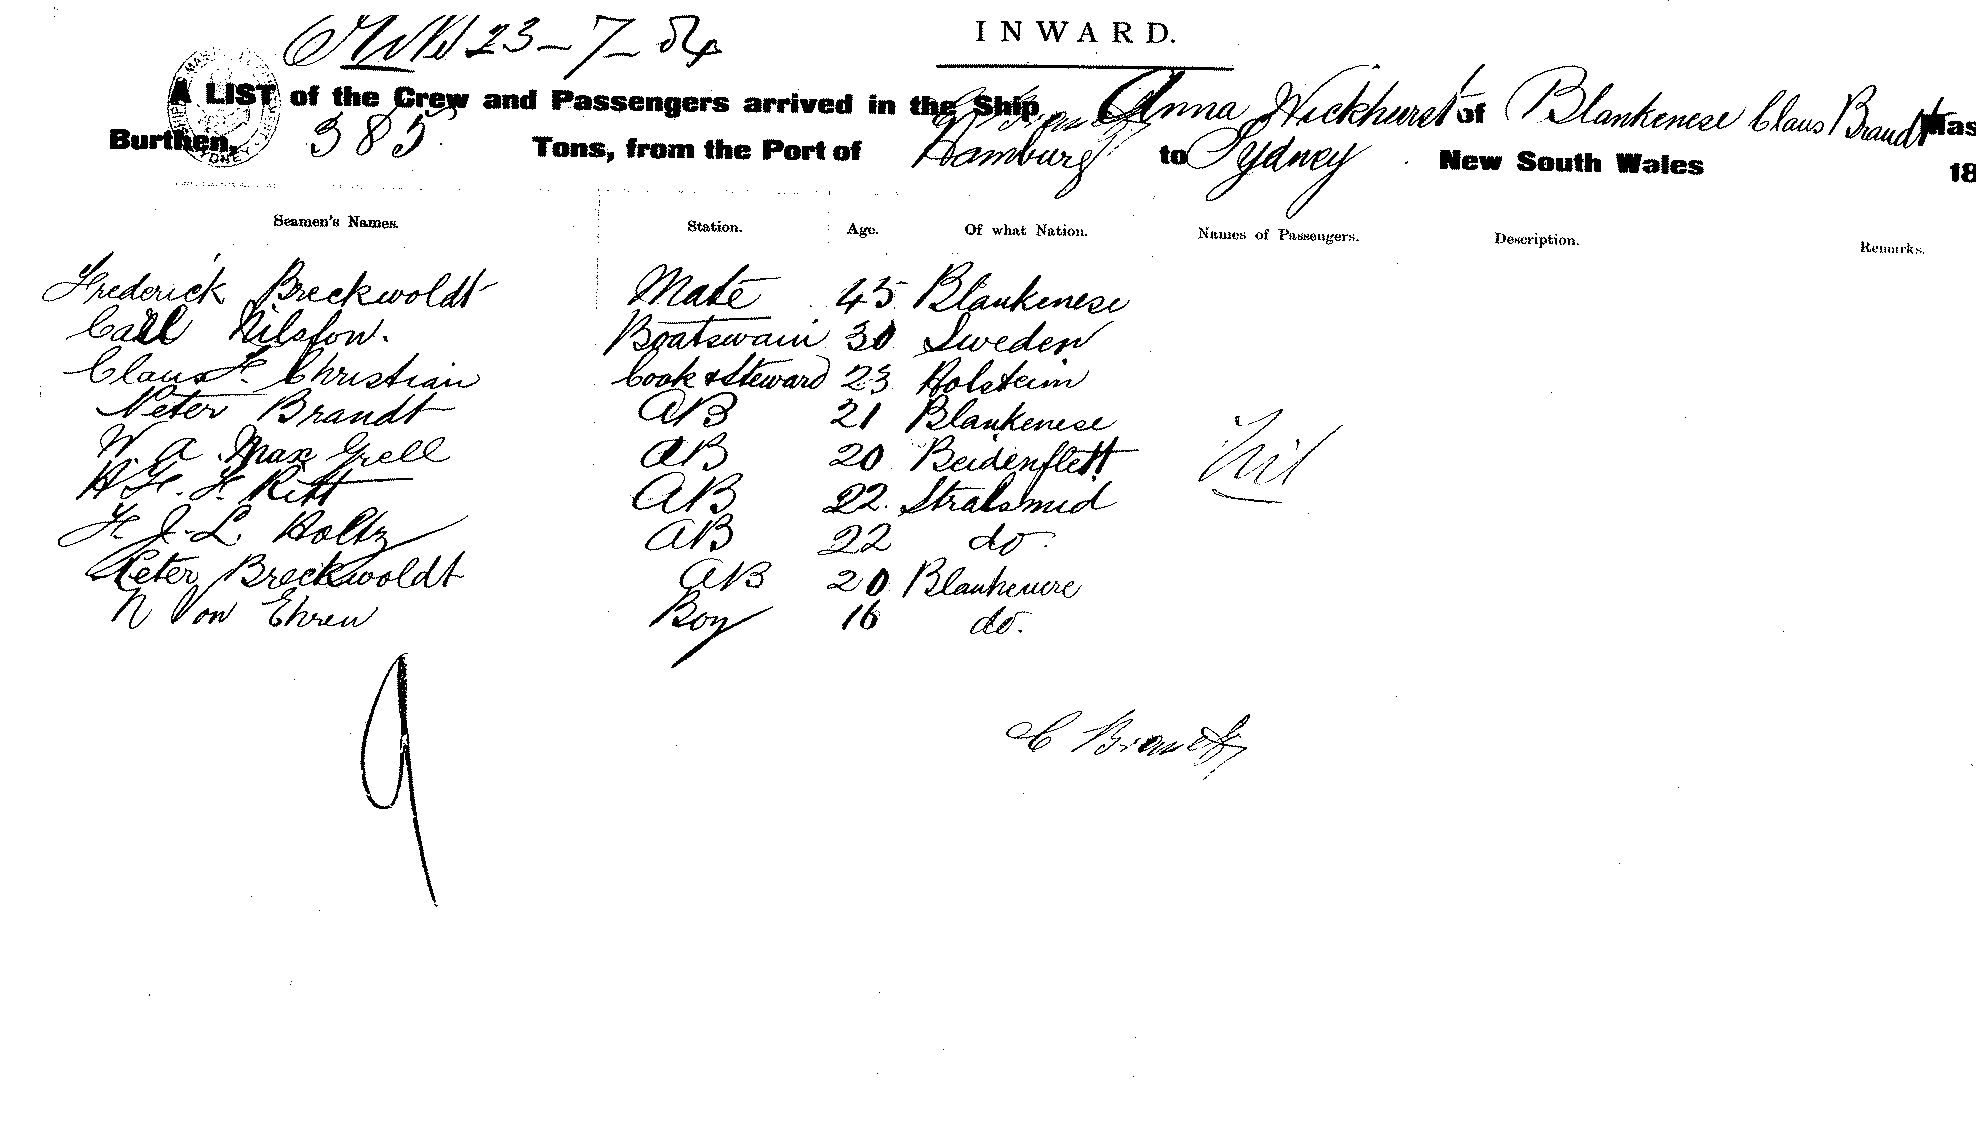 23-7-84
INWARD.
A LIST of the Crew and Passengers arrived in the Ship Anna Wickhurst of Blankenese Claus Brandt Mas
Burthen, 385 Tons, from the Port of Hamburg to Sydney New South Wales 18
Seamen's Names. Station. Age. Of what Nation. Names of Passengers. Description. Remarks.
Frederick Breckwoldt Mate 45 Blankenese
Carl Nilsson. Boatswain 30 Sweden
Claus F. Christian Cook & Steward 23 Holstein
Peter Brandt AB 21 Blankenese
W. A. Max Grell AB 20 Beidenflett
H. F. F. Ritt AB 22. Stralsund
F. J. L. Holtz AB 22 do.
Nil
Peter Breckwoldt AB 20 Blankenese
N Von Ehren Boy 16 do.
9
C Brandt